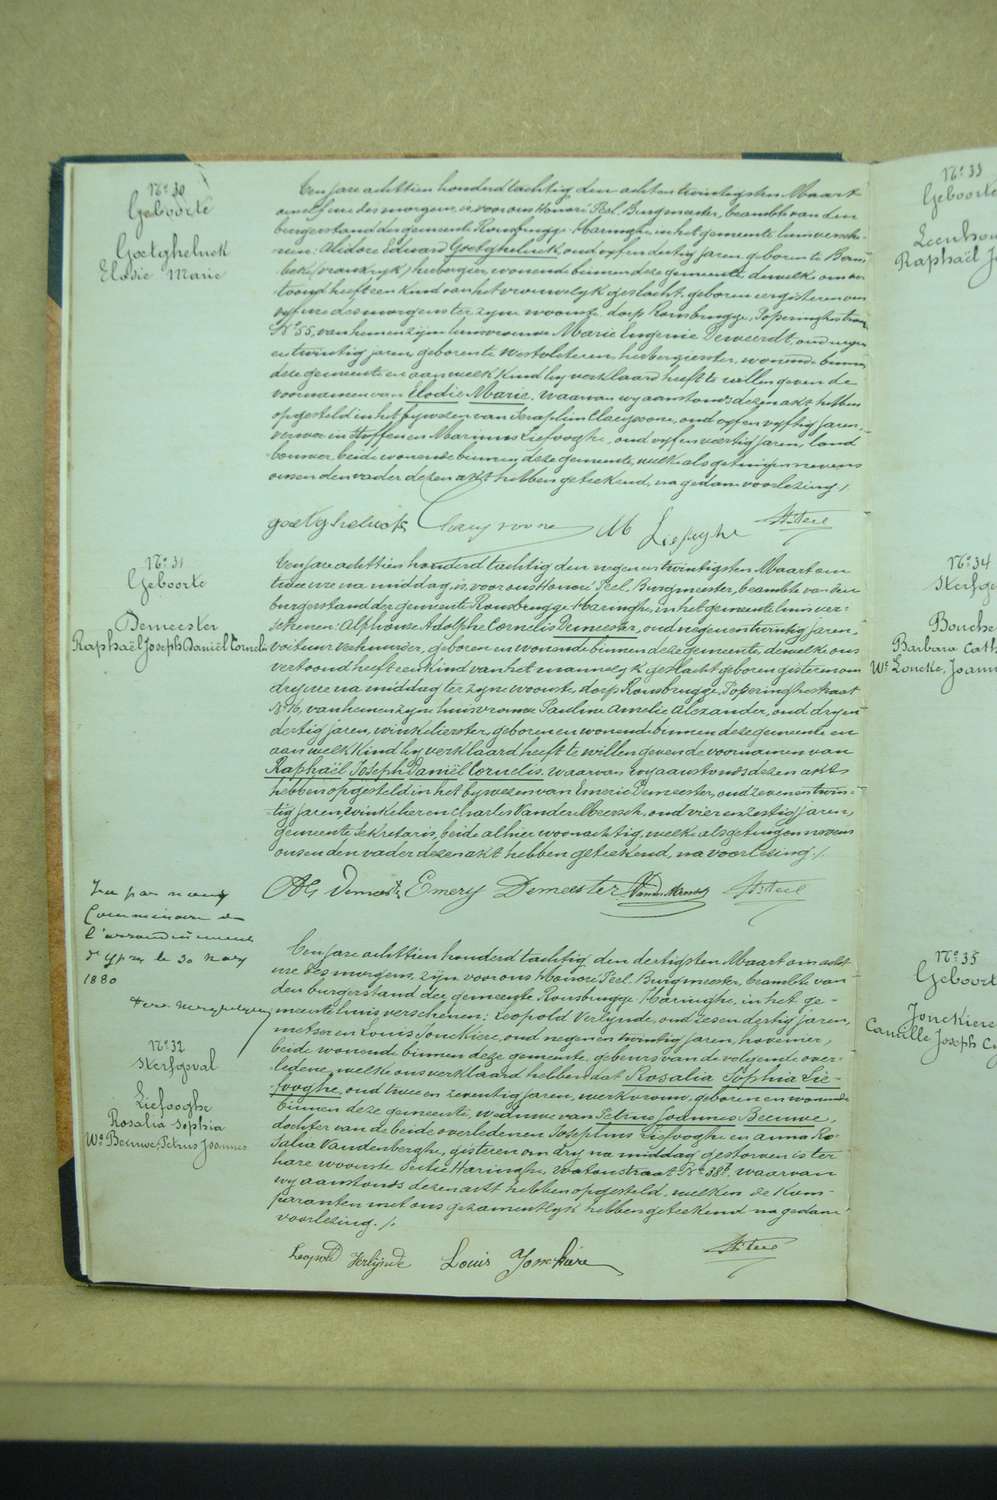 No. 30
Geboorte
Goetgheluck
Elodie Marie
Een jare achttien honderd tachtig den achten twintigsten Maart
om elf ure des morgens, is voor ons Honoré Feel, Burgmeester, beambte van den
burgerstand der gemeente Rousbrugge-Haringhe, in het gemeente huis versche-
nen: Alidore Eduard Goetgheluck, oud vyf en dertig jaren, geboren te Bam-
beke (frankryk) herbergier, wonende binnen deze gemeente, dewelke ons ver-
toond heeft een kind van het vrouwelyk geslacht, geboren eergisteren om
vyf ure des morgens ter zyne woonste, dorp Rousbrugge, Poperinghestraat
No. 55, van hem en zyne huisvrouwe Marie Eugenie Deweerdt, oud negen
en twintig jaren, geboren te Westvleteren, herbergierster, wonende binnen
deze gemeente en aan welk kind hy verklaard heeft te willen geven de
voornamen van Elodie Marie. Waarvan wy aanstonds dezen akt hebben
opgesteld in het bywezen van Seraphin Claeysoone, oud vyf en vyftig jaren,
verwer in stoffen en Marinus Liefooghe, oud vyf en veertig jaren, land
bouwer, beide wonende binnen deze gemeente, welke als getuigen nevens
ons en den vader dezen akt hebben geteekend, na gedane voorlezing /.
goetgheluck Claeysoone M Liefooghe
No. 31
Geboorte
Demeester
Raphaël Joseph Daniël Cornelis
Een jare achttien honderd tachtig den negen en twintigsten Maart om
twee ure na middag, is voor ons Honoré Feel, Burgmeester, beambte van den
burgerstand der gemeente Rousbrugge-Haringhe, in het gemeente huis ver-
schenen: Alphonse Adolphe Cornelis Demeester, oud negen en twintig jaren,
voituur verhuurder, geboren en wonende binnen deze gemeente, dewelke ons
vertoond heeft een kind van het mannelyk geslacht, geboren gisteren om
dry ure na middag ter zyne woonste, dorp Rousbrugge, Poperinghestraat
No. 16, van hem en zyne huisvrouwe Pauline Amelie Alexander, oud dry en
dertig jaren, winkelierster, geboren en wonende binnen deze gemeente en
aan welk kind hy verklaard heeft te willen geven de voornamen van
Raphaël Joseph Daniël Cornelis. Waarvan wy aanstonds dezen akt
hebben opgesteld in het bywezen van Emerie Demeester, oud zeven en twin-
tig jaren, winkelier en Charles Vander Meersch, oud vier en zestig jaren,
gemeente sekretaris, beide alhier woonachtig, welke als getuigen nevens
ons en den vader dezen akt hebben geteekend, na voorlezing /.
Demeester Emery Demeester VanderMeersch
Vu par nous
Commissaire de
l'arrondissement
d'Ypres le 30 mars
1880
No. 32
Sterfgeval
Liefooghe
Rosalia Sophia
We. Beuwe, Petrus Joannes
Een jare achttien honderd tachtig den dertigsten Maart om acht
ure des morgens, zyn voor ons Honoré Feel, Burgmeester, beambte van
den burgerstand der gemeente Rousbrugge-Haringhe, in het ge-
meente huis verschenen: Leopold Verlynde, oud zes en dertig jaren,
metser en Louis Jonckiere, oud negen en twintig jaren, hovenier,
beide wonende binnen deze gemeente, gebeurs van de volgende over-
ledene, welke ons verklaard hebben dat Rosalia Sophia Lie-
fooghe, oud twee en zeventig jaren, werkvrouw, geboren en wonende
binnen deze gemeente, weduwe van Petrus Joannes Beuwe,
dochter van de beide overledenen Josephus Liefooghe en Anna Ro-
salia Vandenberghe, gisteren om dry na middag gestorven is ter
hare woonste Sectie Haringhe, Watoustraat No. 38. Waarvan
wy aanstonds dezen akt hebben opgesteld, welken de kom-
paranten met ons gezamentlyk hebben geteekend na gedane
voorlezing. /.
Leopold Verlynde Louis Jonckiere
No. 33
Geboorte
Raphaël
No. 34
Sterfge
Bouche
Barbara Cath
We. Loncke, Joann
No. 35
Geboort
Jonckiere
Camille Joseph Cy